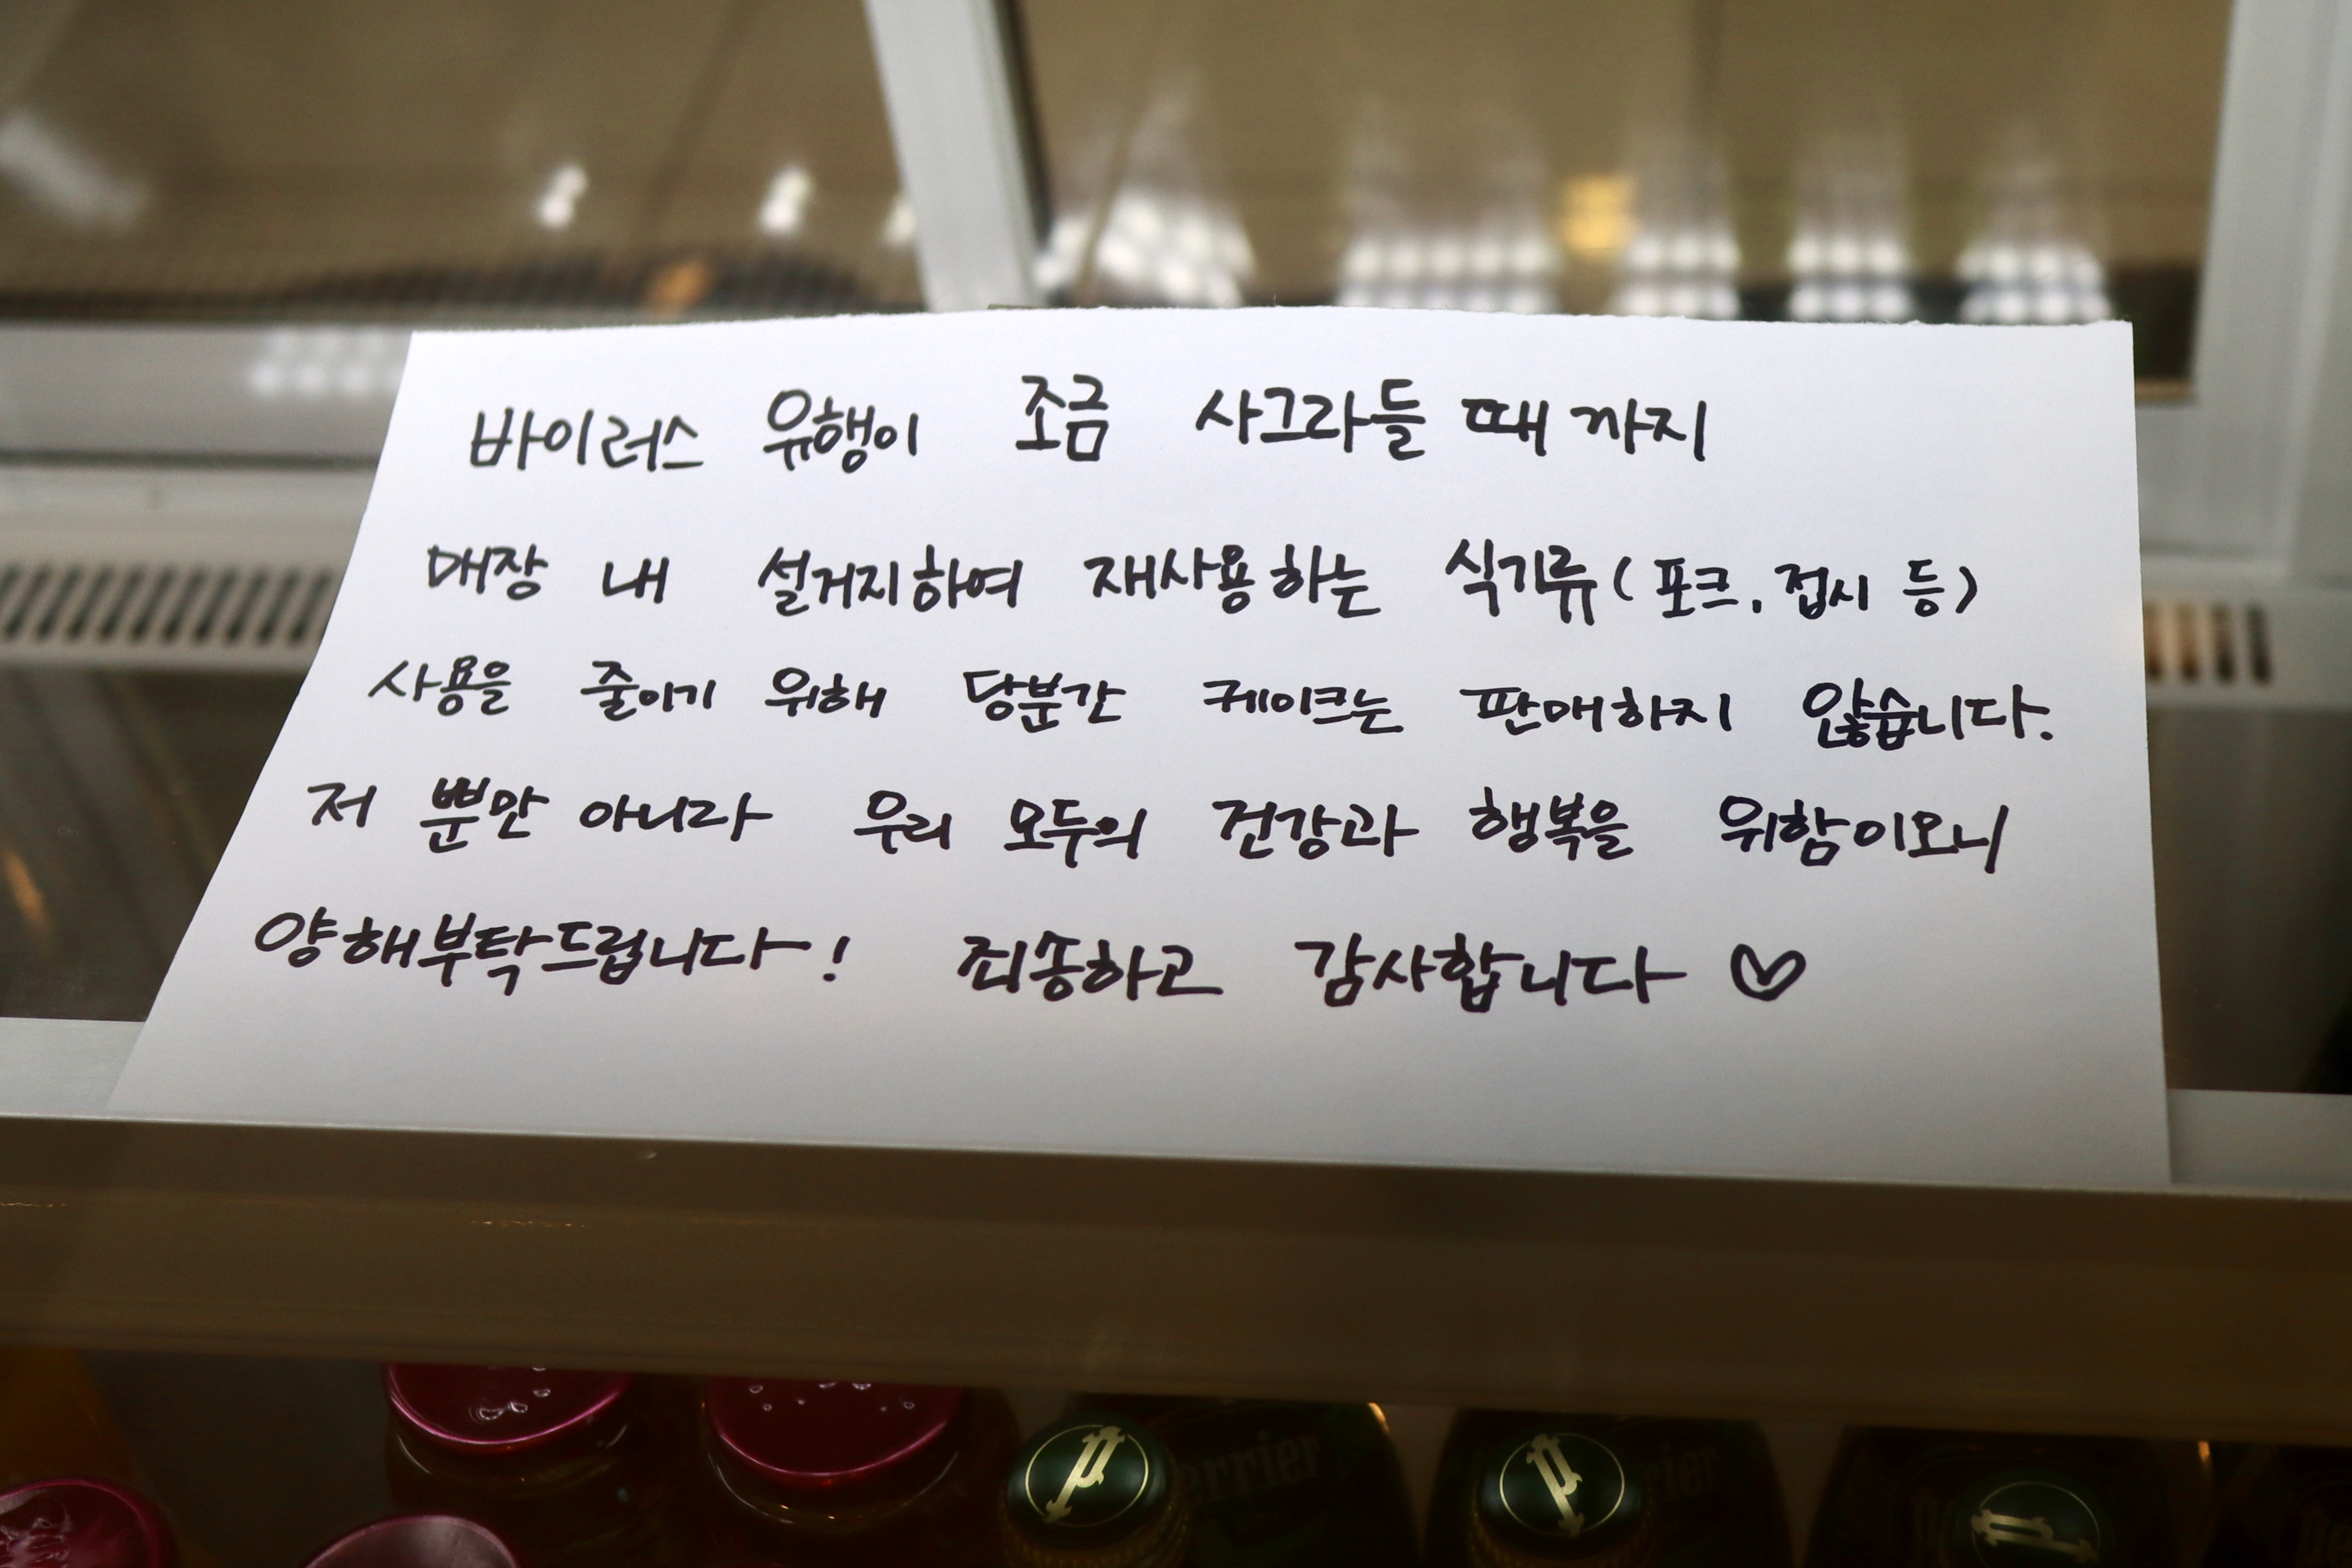 바이러스 유행이 조금 사그라들 때 까지
매장 내 설거지하여 재사용하는 식기류(포크, 접시 등)
사용을 줄이기 위해 당분간 케이크는 판매하지 않습니다.
저 뿐만 아니라 우리 모두의 건강과 행복을 위함이오니
양해부탁드립니다! 죄송하고 감사합니다♡